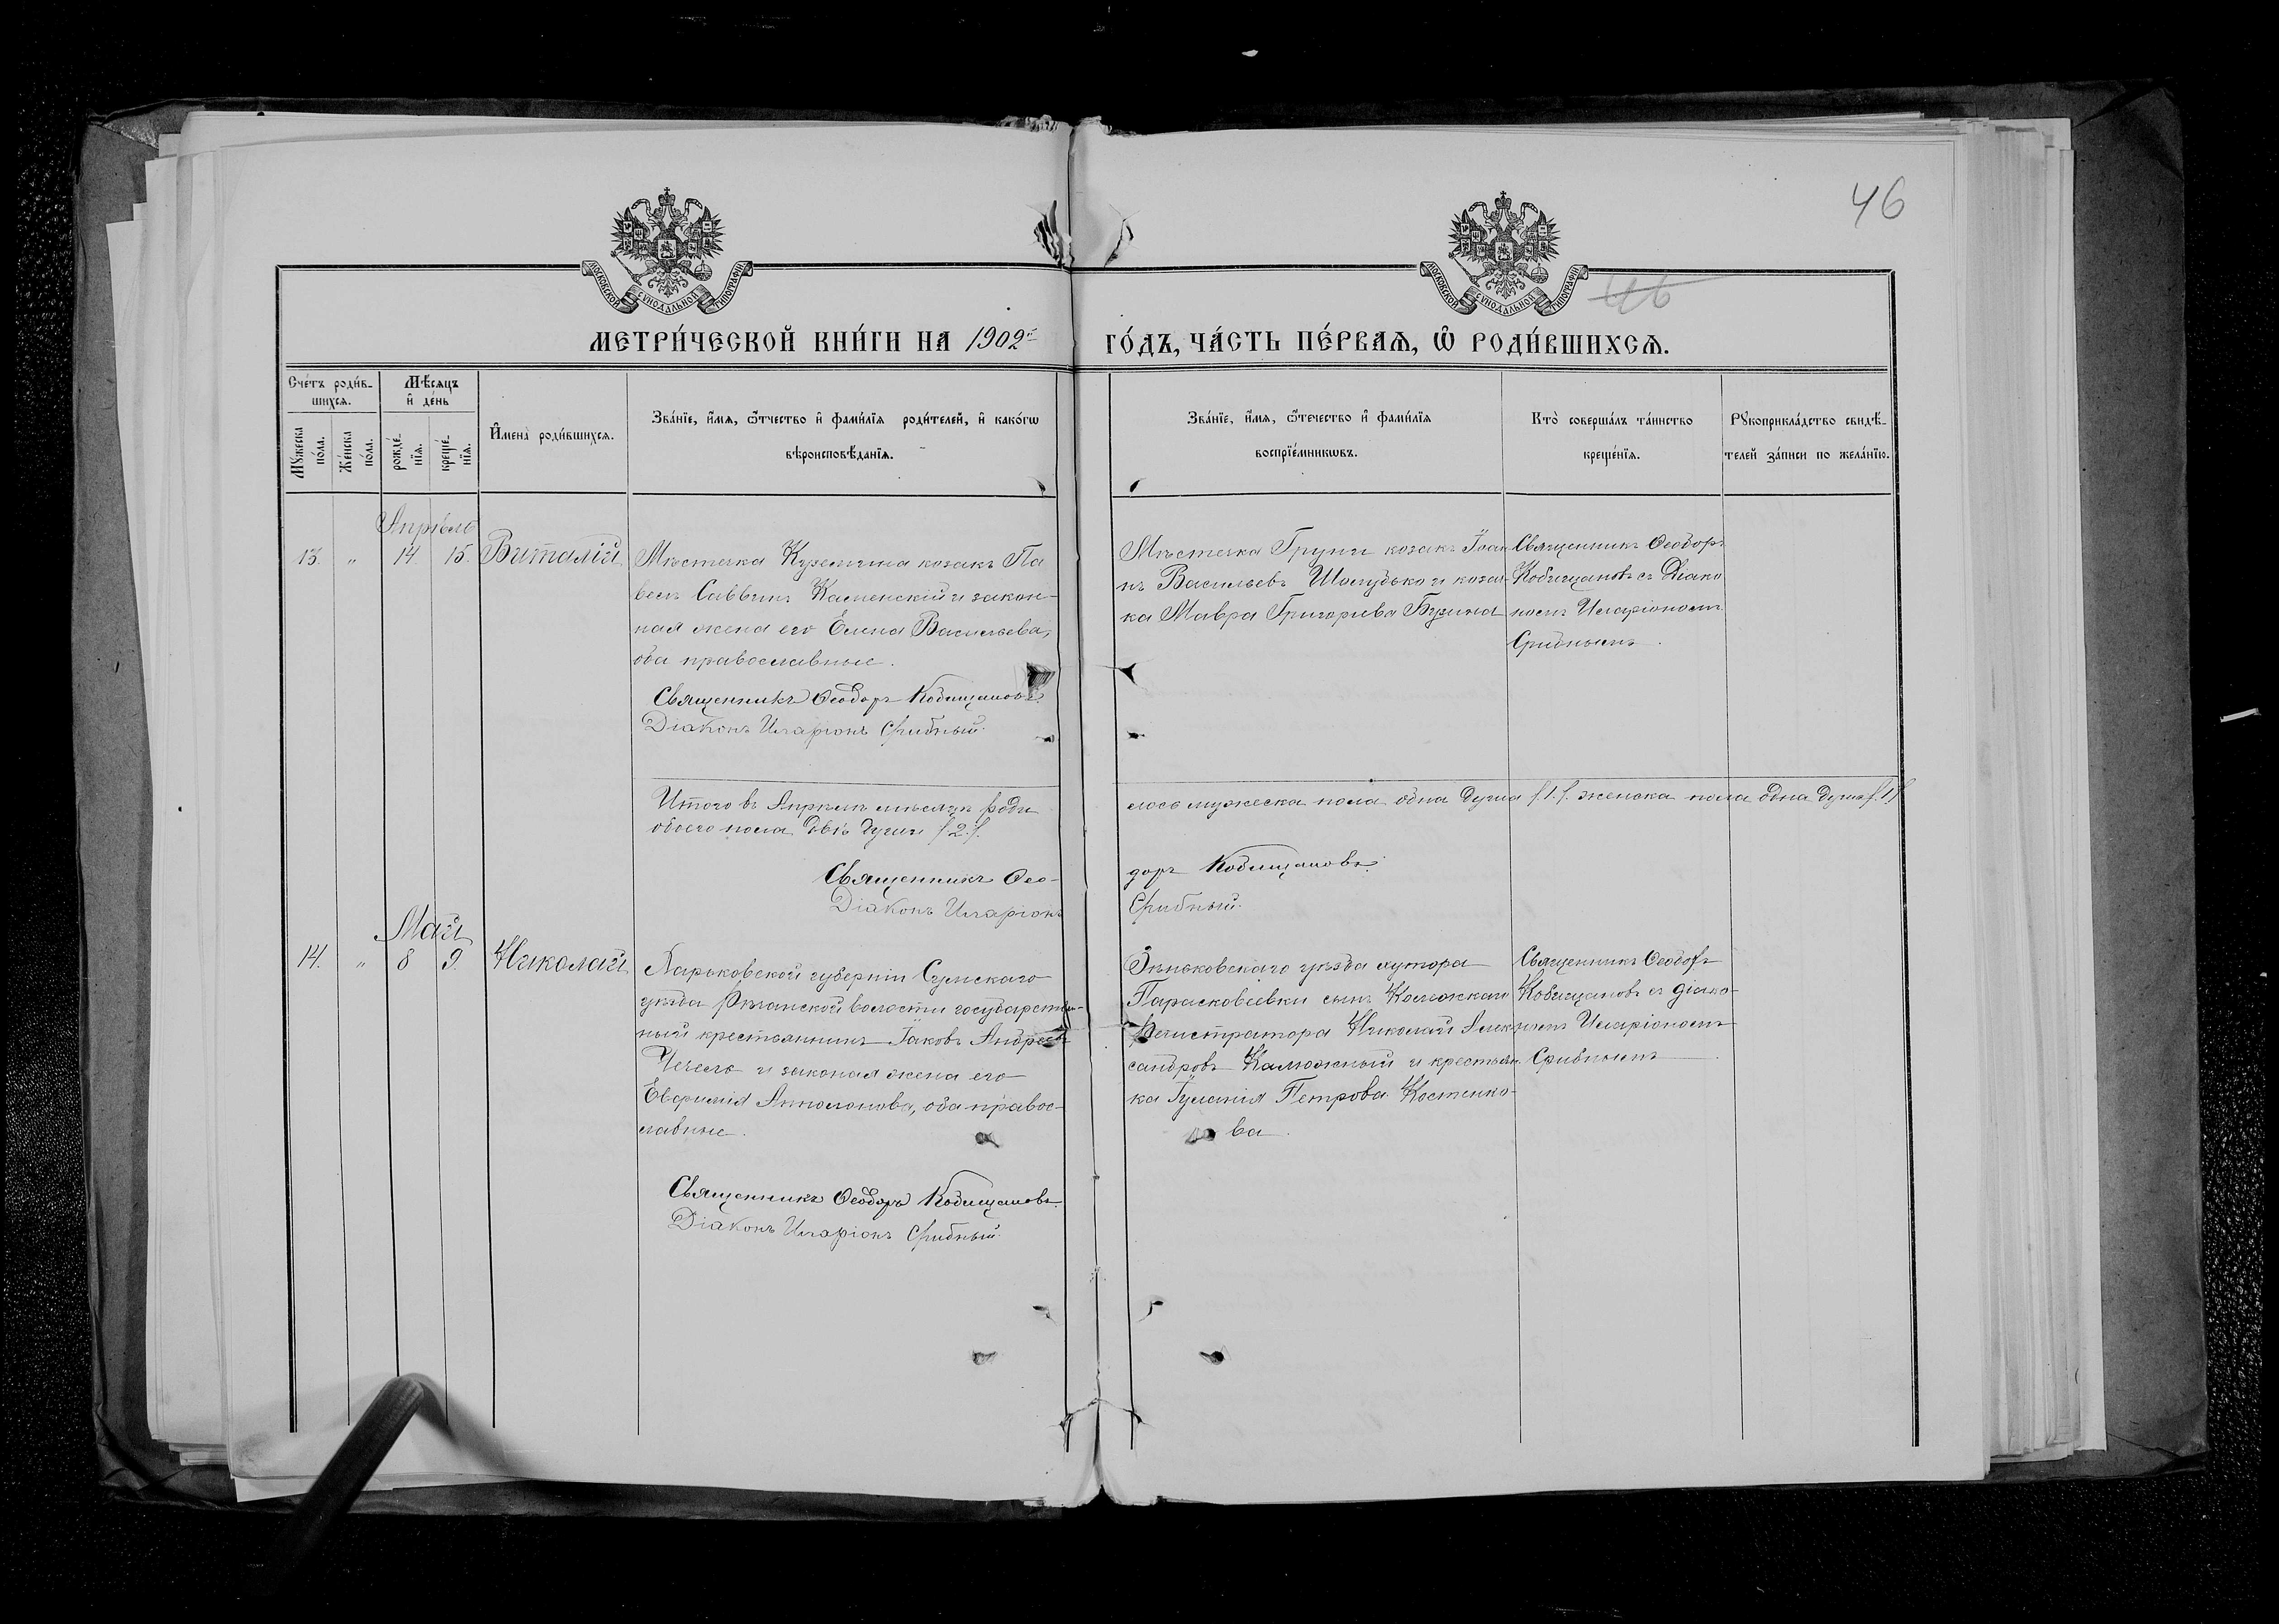 46
46
МОСКОВСКОЙ СѴНОДАЛЬНОЙ ТИПОГРАФІИ
МОСКОВСКОЙ СѴНОДАЛЬНОЙ ТИПОГРАФІИ
МЕТРИ́ЧЕСКОЙ КНИ́ГИ НА 1902й ГО́ДЪ, ЧА́СТЬ ПЕ́РВАѦ, Ѽ РОДИ́ВШИХСѦ.
Сче́тъ роди́в-
шихсѧ.
Мѣ́сѧцъ
и҆ де́нь
Мꙋ́жеска по́ла.
Же́нска по́ла.
рожде́-
нїѧ.
креще́-
нїѧ.
И҆мена̀ роди́вшихсѧ.
Зва́нїе, и҆́мѧ, ѻ҆́тчество и҆ фами́лїѧ роди́телей, и҆ како́гѡ
вѣроисповѣ́данїѧ.
Зва́нїе, и҆́мѧ, ѻ҆́течество и҆ фами́лїѧ
воспрїе́мникѡвъ.
Кто̀ соверша́лъ та́инство
креще́нїѧ.
Рꙋкоприкла́дство свидѣ́-
телей за́писи по жела́нїю.
Апрѣль
13. " 14 15. Виталій
Мѣстечка Куземина козакъ Па
велъ Саввинъ Каменскій и закон-
ная жена его Елена Васильева,
оба православные.
Священникъ Ѳеодоръ Кобищановъ.
Діаконъ Иларіонъ Срибный.
Мѣстечка Груни козакъ Іоан
нъ Васильевъ Шолудько и козач-
ка Мавра Григорьева Бузина
Священникъ Ѳеодоръ
Кобищановъ съ Діако
номъ Иларіономъ
Срибнымъ.
Итого въ Апрѣлѣ мѣсяцѣ роди
лось мужеска пола одна душа /.1./. женска пола одна душа /.1./
обоего пола двѣ души /.2./.
Священникъ Ѳео-
доръ Кобищановъ.
Діаконъ Иларіонъ
Срибный.
Май
14. " 8 9. Николай
Харьковской губерніи Сумскаго
уѣзда Рѣчанской волости государствен-
ный крестьянинъ Іаковъ Андреевъ
и законая жена его
Евфимія оба правос-
лавные.
Священникъ Ѳеодоръ Кобищановъ.
Діаконъ Иларіонъ Срибный.
Зѣньковскаго уѣзда хутора
Парасковіевки сынъ Коллежскаго
Регистратора Николай Алек
сандровъ Калюжный и крестьян
ка Іуліанія Петрова Костенко-
ва.
Священникъ Ѳеодоръ
Кобищановъ съ діако-
номъ Иларіономъ
Срибнымъ